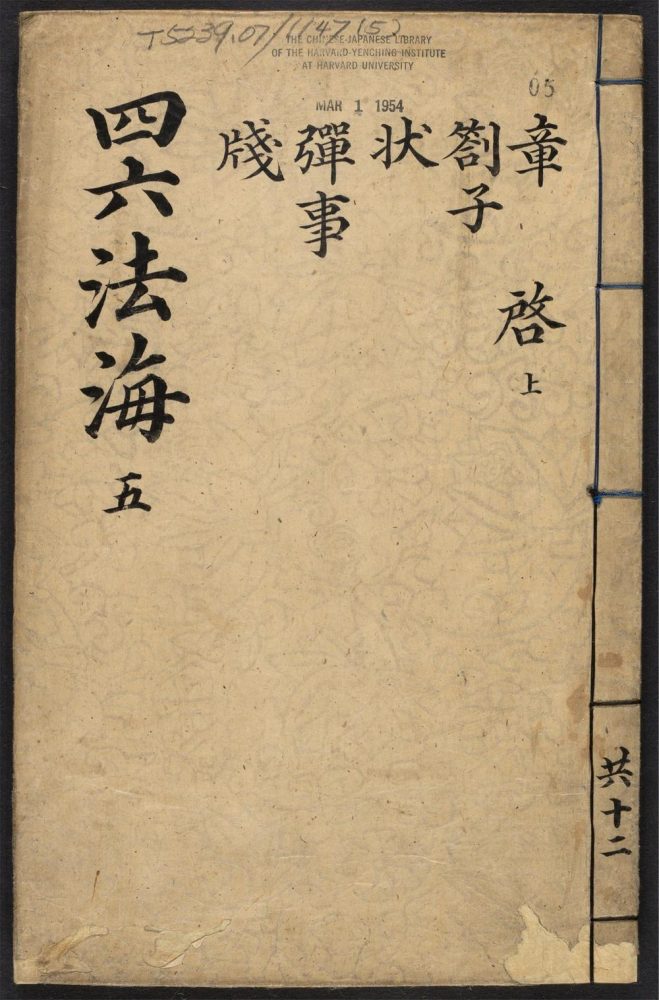 T5239.07/1147(5)
THE CHINESE-JAPANESE LIBRARY
OF THE HARVARD-YENCHING INSTITUTE
AT HARVARD UNIVERSITY
MAR 1 1954
05
章
劄子
状
彈事
牋
啓上
四六法海 五
共十二